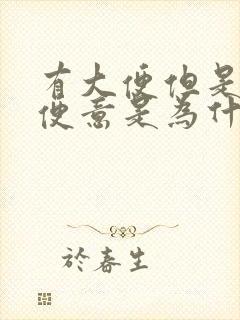 有大便但是
便意是為什
於春生